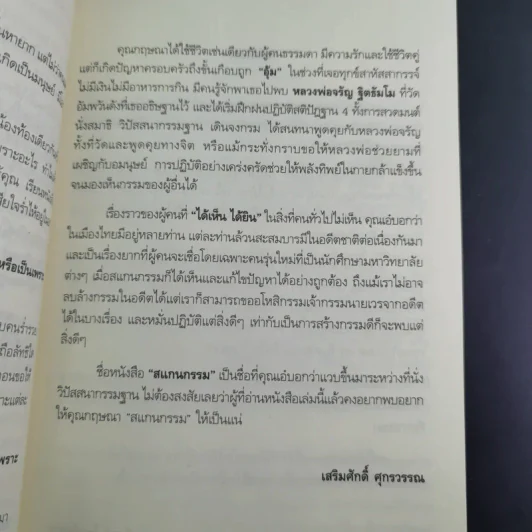 นหายาก แต่ไม่
เกิดเป็นมนุษย์
น้องท้องเดียวกัน
เพราะอะไร ทำไม
คุณ เรียนหนัง
หรือเป็นเพราะ
บคนร่ำรวย
ถือลัทธิใด
เพราะ
คุณกฤษณาได้ใช้ชีวิตเช่นเดียวกับผู้คนธรรมดา มีความรักและใช้ชีวิตคู่
แต่ก็เกิดปัญหาครอบครัวถึงขั้นเกือบถูก "อุ้ม" ในช่วงที่เจอทุกข์สาหัสสากรรจ์
ไม่มีเงินไม่มีอาหารการกิน มีคนรู้จักพาเธอไปพบ หลวงพ่อจรัญ ฐิตธัมโม ที่วัด
อัมพวันดังที่เธออธิษฐานไว้ และได้เริ่มฝึกฝนปฏิบัติสติปัฏฐาน 4 ทั้งการสวดมนต์
นั่งสมาธิ วิปัสสนากรรมฐาน เดินจงกรม ได้สนทนาพูดคุยกับหลวงพ่อจรัญ
ทั้งที่วัดและพูดคุยทางจิต หรือแม้กระทั่งกราบขอให้หลวงพ่อช่วยยามที่
เผชิญกับอมนุษย์ การปฏิบัติอย่างเคร่งครัดช่วยให้พลังทิพย์ในกายกล้าแข็งขึ้น
จนมองเห็นกรรมของผู้อื่นได้
เรื่องราวของผู้คนที่ "ได้เห็น ได้ยิน" ในสิ่งที่คนทั่วไปไม่เห็น คุณเอ๋บอกว่า
ในเมืองไทยมีอยู่หลายท่าน แต่ละท่านล้วนสะสมบารมีในอดีตชาติต่อเนื่องกันมา
และเป็นเรื่องยากที่ผู้คนจะเชื่อโดยเฉพาะคนรุ่นใหม่ที่เป็นนักศึกษามหาวิทยาลัย
ต่างๆ เมื่อสแกนกรรมก็ได้เห็นและแก้ไขปัญหาได้อย่างถูกต้อง ถึงแม้เราไม่อาจ
ลบล้างกรรมในอดีตได้แต่เราก็สามารถขออโหสิกรรมเจ้ากรรมนายเวรจากอดีต
ได้ในบางเรื่อง และหมั่นปฏิบัติแต่สิ่งดีๆ เท่ากับเป็นการสร้างกรรมดีก็จะพบแต่
สิ่งดีๆ
ชื่อหนังสือ "สแกนกรรม" เป็นชื่อที่คุณเอ๋บอกว่าแวบขึ้นมาระหว่างที่นั่ง
วิปัสสนากรรมฐาน ไม่ต้องสงสัยเลยว่าผู้ที่อ่านหนังสือเล่มนี้แล้วคงอยากพบอยาก
ให้คุณกฤษณา "สแกนกรรม" ให้เป็นแน่
เสริมศักดิ์ ศุกรวรรณ